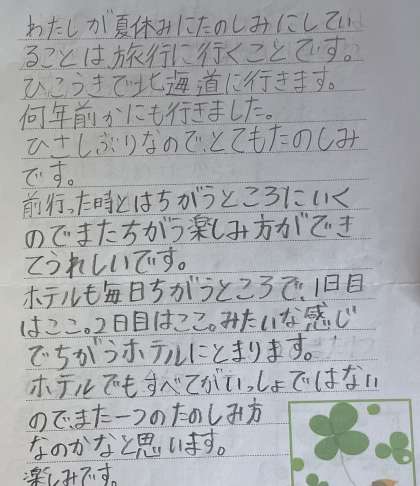 わたしが夏休みにたのしみにしてい
ることは、旅行に行くことです。
ひこうきで北海道に行きます。
何年前かにも行きました。
ひさしぶりなので、とてもたのしみ
です。
前行った時とはちがうところにいく
のでまたちがう楽しみ方ができ
てうれしいです。
ホテルも毎日ちがうところで、1日目
はここ。2日目はここ。みたいな感じ
でちがうホテルにとまります。
ホテルでもすべてがいっしょではない
ので、また一つのたのしみ方
なのかなと思います。
楽しみです。